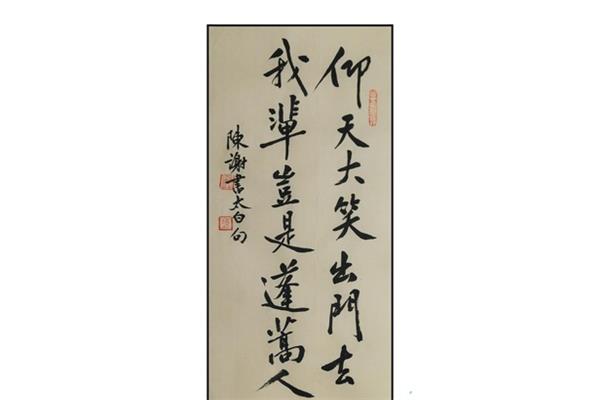 仰天大笑出門去
我輩豈是蓬蒿人
陳謝書太白句